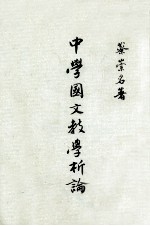 蔡崇名著
中學國文教學析論